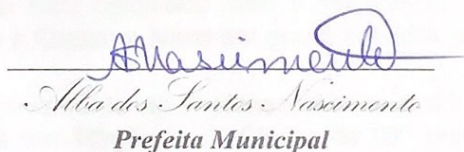 ANascimento
Alba dos Santos Nascimento
Prefeita Municipal